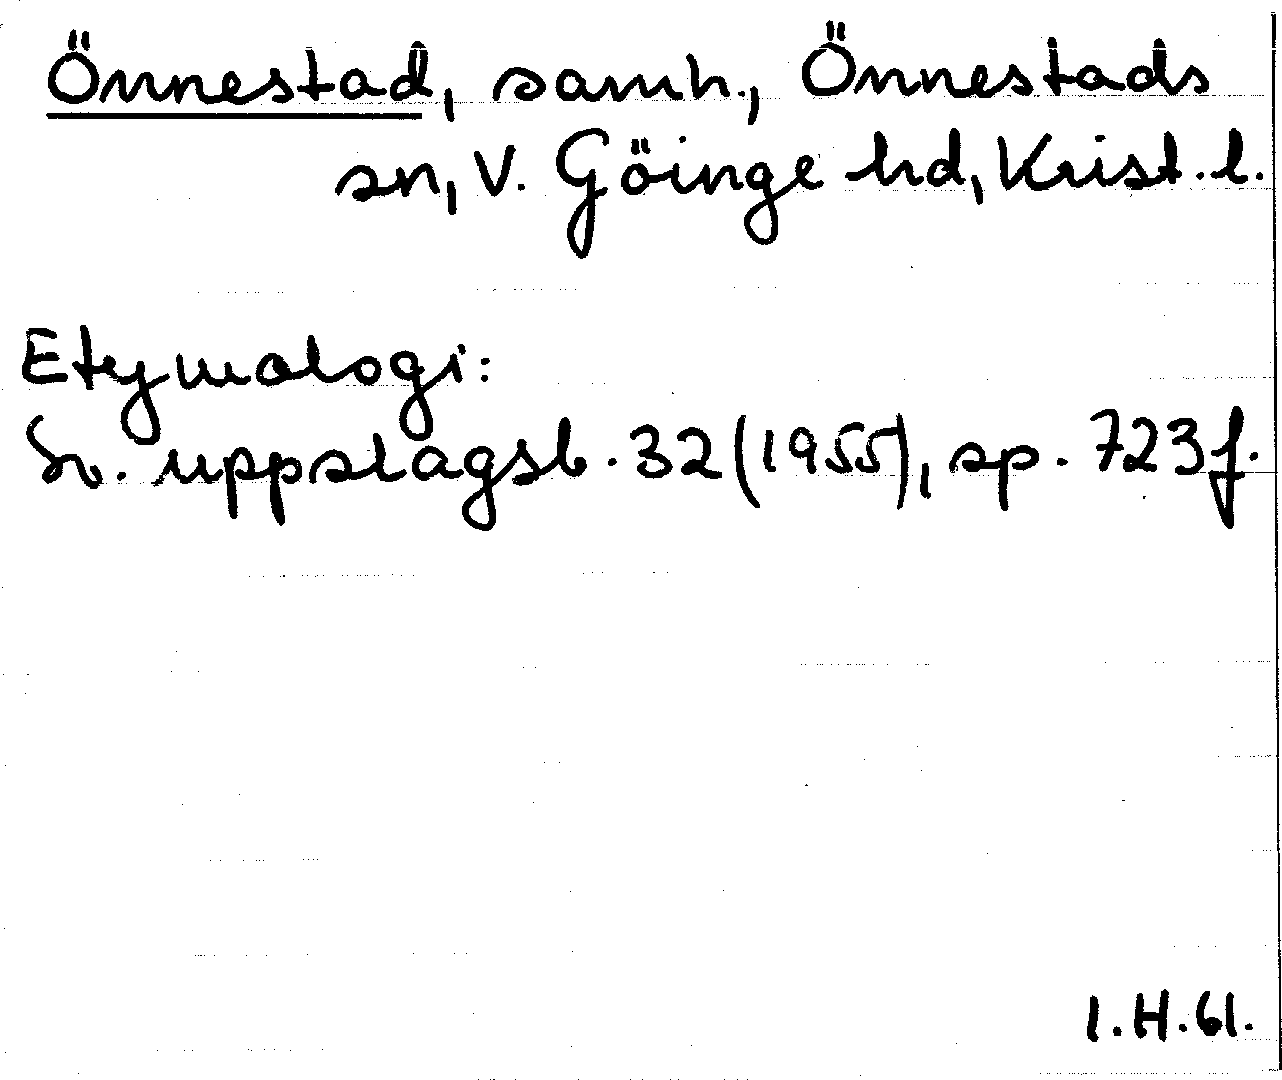 Önnestad, samh., Önnestads
sn, V. Göinge hd, Krist. l.
Etymologi:
Sv. uppslagsb. 32 (1955), sp. 723 f.
I.H.61.